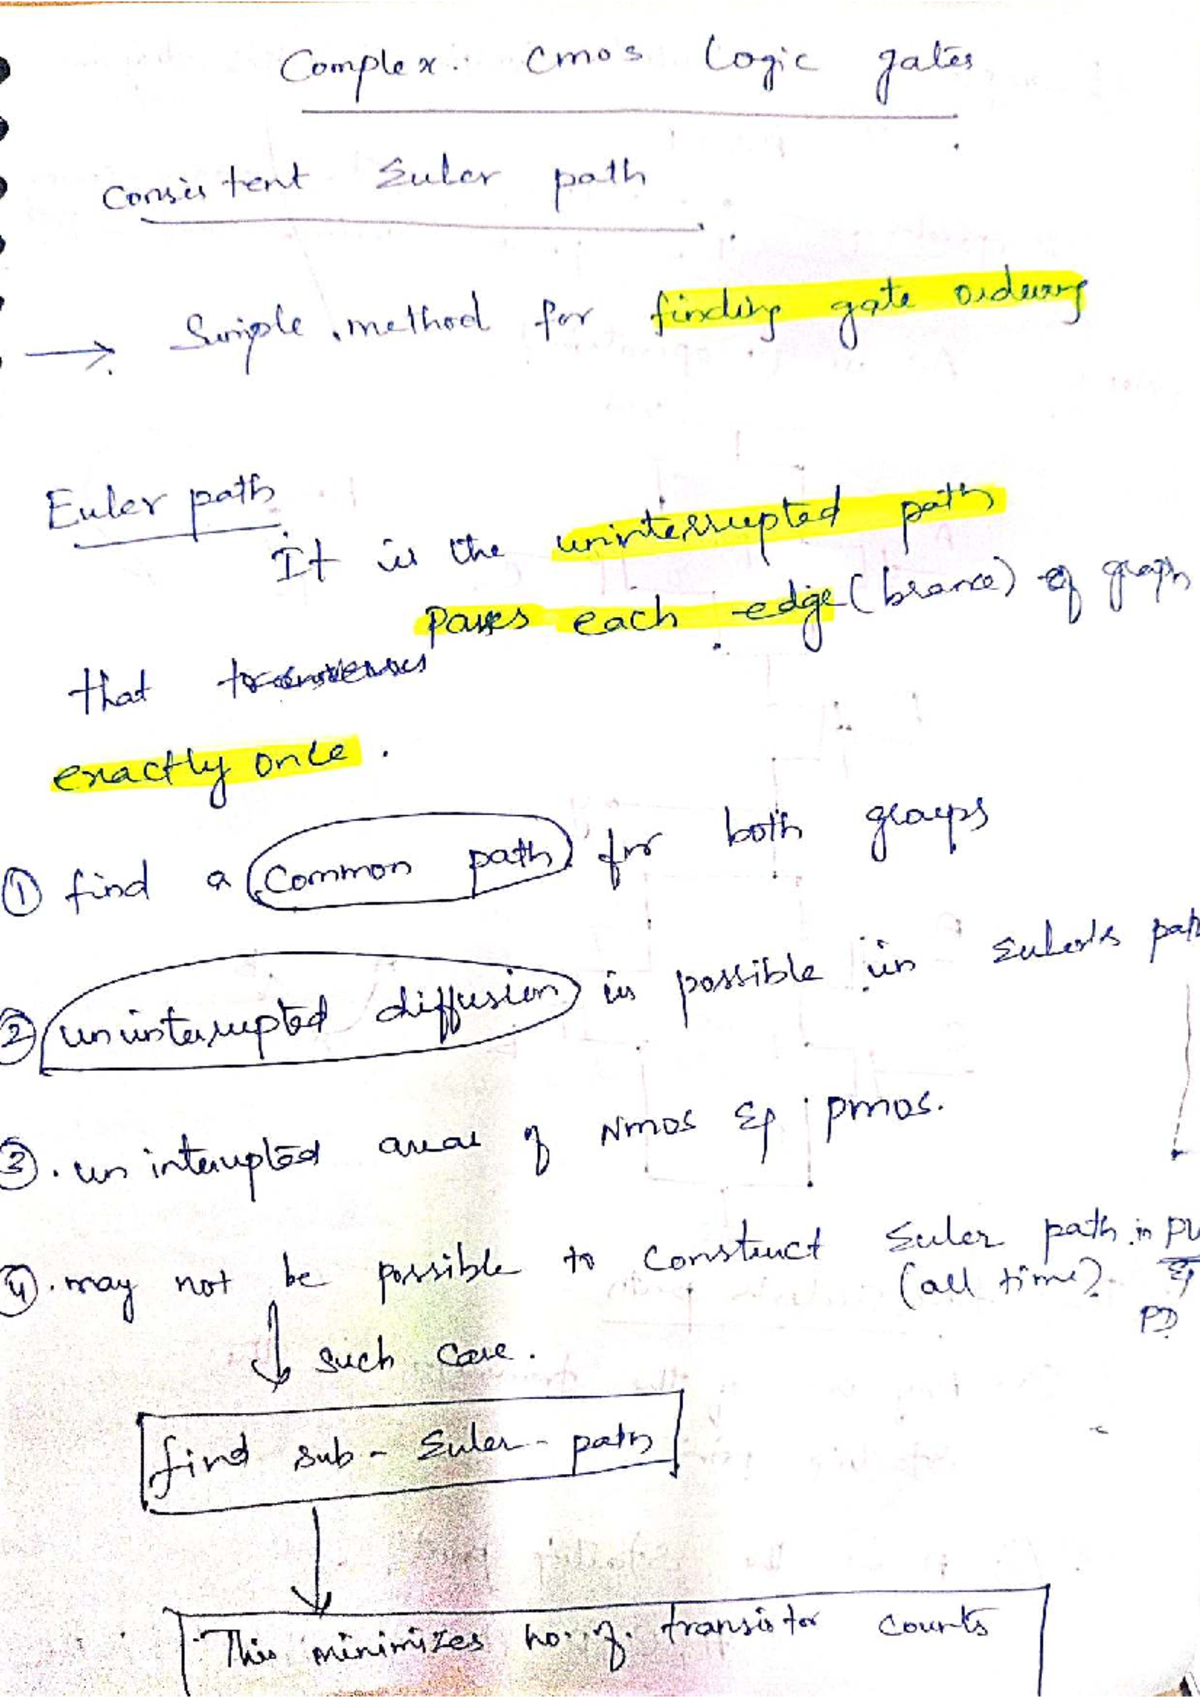 Complex CMOS Logic gates
Consistent Euler path
→ Simple method for finding gate ordering
Euler path
It is the uninterrupted path
that passes each edge (brance) of graph
exactly once.
① find a common path for both graphs
② uninterrupted diffusion is possible in Euler's path
③. uninterupted areas of NMOS & PMOS.
④. may not be possible to construct Euler path in PU
(all time). &
PD
↓ such case.
find sub-Euler-path
This minimizes no. of. transistor counts